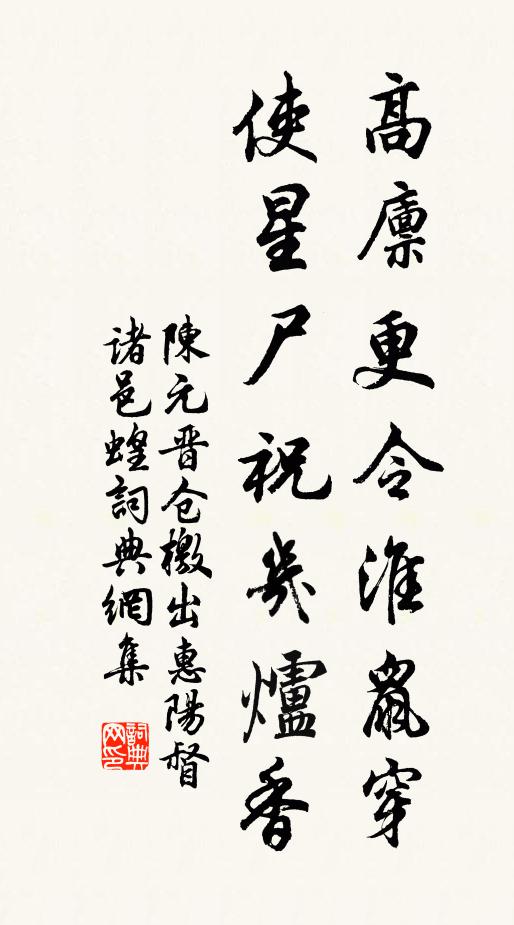 高廪更令淮鼠穿
使星尸祝幾爐香
陳元晋仓檄出惠陽督
诸邑蝗詞典網集
詞典网